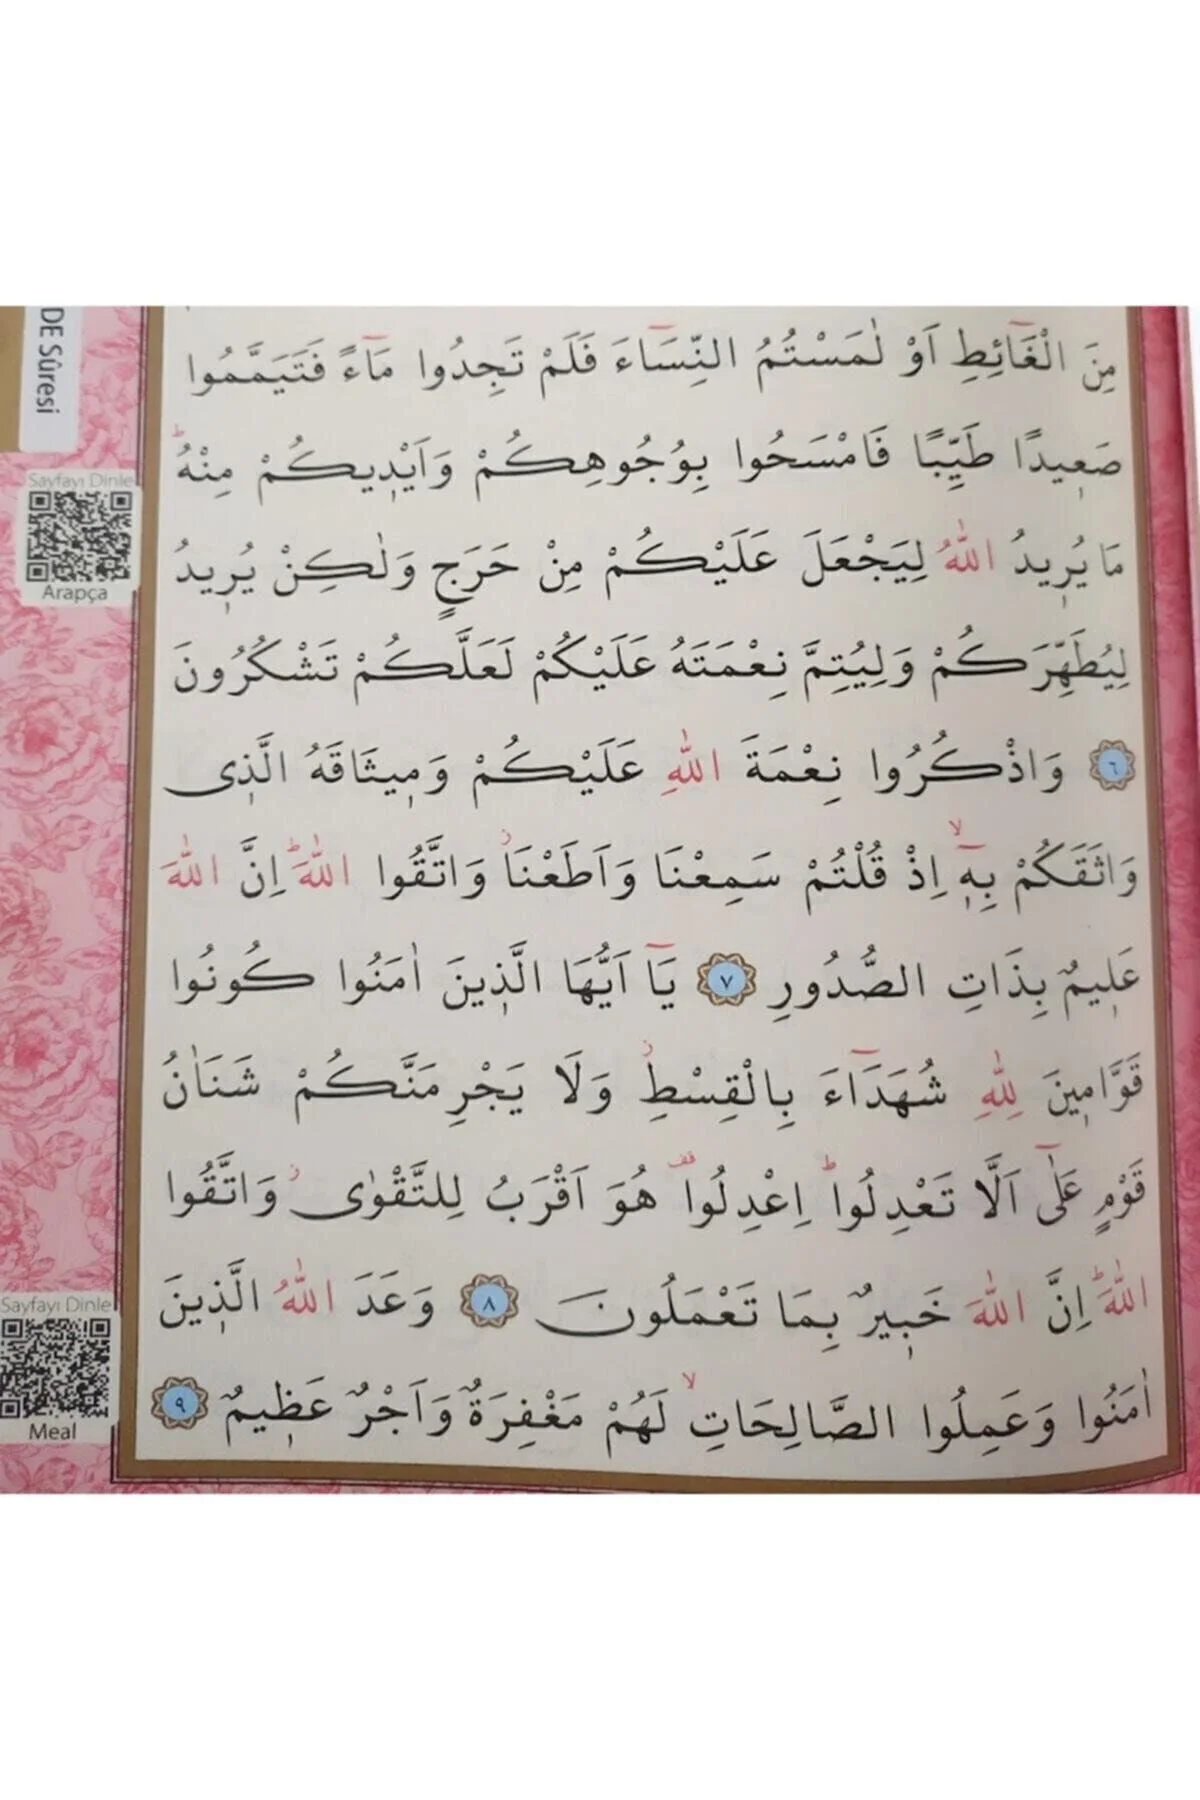 DE Sûresi
مِنَ الْغَٓائِطِ اَوْ لٰمَسْتُمُ النِّسَٓاءَ فَلَمْ تَجِدُوا مَٓاءً فَتَيَمَّمُوا
صَعٖيدًا طَيِّبًا فَامْسَحُوا بِوُجُوهِكُمْ وَاَيْدٖيكُمْ مِنْهُؕ
Sayfayı Dinle
Arapça
مَا يُرٖيدُ اللّٰهُ لِيَجْعَلَ عَلَيْكُمْ مِنْ حَرَجٍ وَلٰكِنْ يُرٖيدُ
لِيُطَهِّرَكُمْ وَلِيُتِمَّ نِعْمَتَهُ عَلَيْكُمْ لَعَلَّكُمْ تَشْكُرُونَ
٦ وَاذْكُرُوا نِعْمَةَ اللّٰهِ عَلَيْكُمْ وَمٖيثَاقَهُ الَّذٖى
وَاثَقَكُمْ بِهٖٓۙ اِذْ قُلْتُمْ سَمِعْنَا وَاَطَعْنَاؗ وَاتَّقُوا اللّٰهَؕ اِنَّ اللّٰهَ
عَلٖيمٌ بِذَاتِ الصُّدُورِ ٧ يَٓا اَيُّهَا الَّذٖينَ اٰمَنُوا كُونُوا
قَوَّامٖينَ لِلّٰهِ شُهَدَٓاءَ بِالْقِسْطِؗ وَلَا يَجْرِمَنَّكُمْ شَنَاٰنُ
قَوْمٍ عَلٰٓى اَلَّا تَعْدِلُواؕ اِعْدِلُوا۠ هُوَ اَقْرَبُ لِلتَّقْوٰىؗ وَاتَّقُوا
اللّٰهَؕ اِنَّ اللّٰهَ خَبٖيرٌ بِمَا تَعْمَلُونَ ٨ وَعَدَ اللّٰهُ الَّذٖينَ
Sayfayı Dinle
Meal
اٰمَنُوا وَعَمِلُوا الصَّالِحَاتِۙ لَهُمْ مَغْفِرَةٌ وَاَجْرٌ عَظٖيمٌ ٩